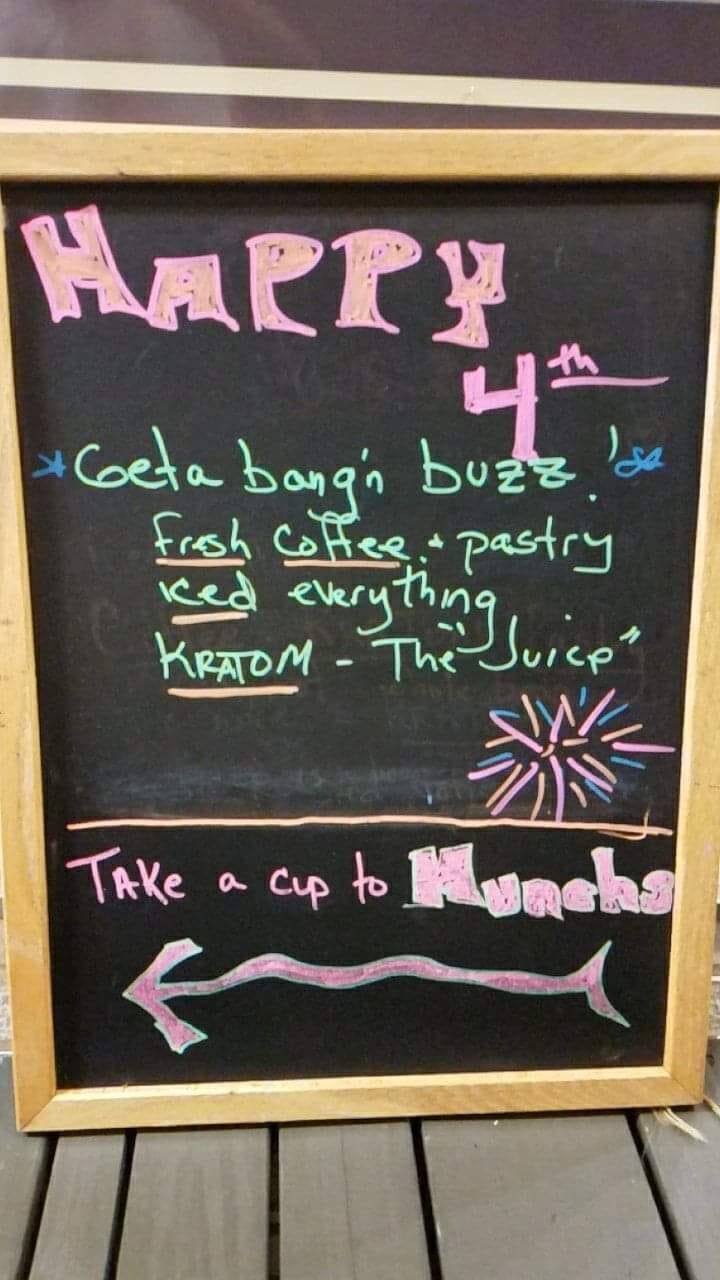 HAPPY
4th
Get a bang'n buzz!
fresh coffee + pastry
iced everything
KRATOM - The "Juice"
TAKe a cup to Munchs